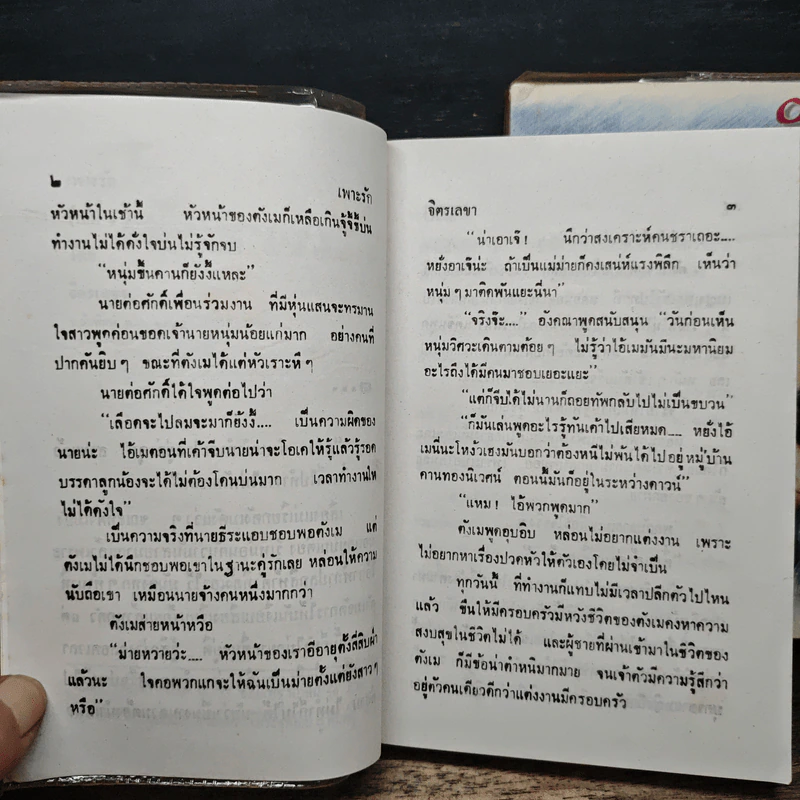 ๒
เพาะรัก
หัวหน้าในเช้านี้ หัวหน้าของตังเมก็เหลือเกินจู้จี้ขี้บ่น
ทำงานไม่ได้ดั่งใจบ่นไม่รู้จักจบ
“หนุ่มขึ้นคานก็ยังงี้แหละ”
นายต่อศักดิ์เพื่อนร่วมงาน ที่มีหุ่นแสนจะทรมาน
ใจสาวพูดค่อนขอดเจ้านายหนุ่มน้อยแก่มาก อย่างคนที่
ปากคันยิบๆ ขณะที่ตังเมได้แต่หัวเราะหึๆ
นายต่อศักดิ์ได้ใจพูดต่อไปว่า
“เลือดจะไปลมจะมาก็ยังงี้.... เป็นความผิดของ
นายน่ะ ไอ้เมตอนที่เค้าจีบนายน่าจะโอเคให้รู้แล้วรู้รอด
บรรดาลูกน้องจะได้ไม่ต้องโดนบ่นมาก เวลาทำงานให้
ไม่ได้ดังใจ”
เป็นความจริงที่นายธีระแอบชอบพอตังเม แต่
ตังเมไม่ได้นึกชอบพอเขาในฐานะคู่รักเลย หล่อนให้ความ
นับถือเขา เหมือนนายจ้างคนหนึ่งมากกว่า
ตังเมส่ายหน้าหวือ
“ม่ายหวายว่ะ.... หัวหน้าของเราอีอายุตั้งสี่สิบผ่า
แล้วนะ ใจคอพวกแกจะให้ฉันเป็นม่ายตั้งแต่ยังสาวๆ
หรือ”
จิตรเลขา
๓
“น่าเอาเจ๊! นึกว่าสงเคราะห์คนชราเถอะ....
หยั่งอาเจ๊น่ะ ถ้าเป็นแม่ม่ายก็คงเสน่ห์แรงพิลึก เห็นว่า
หนุ่มๆ มาติดพันแยะนี่นา”
“จริงจ๊ะ....” อังคณาพูดสนับสนุน “วันก่อนเห็น
หนุ่มวิศวะเดินตามต้อยๆ ไม่รู้ว่าไอ้เมมันมีนะมหานิยม
อะไรถึงได้มีคนมาชอบเยอะแยะ”
“แต่ก็จีบได้ไม่นานก็ถอยทัพกลับไปไม่เป็นขบวน”
“ก็มันเล่นพูดอะไรรู้ทันเค้าไปเสียหมด.... หยั่งไอ้
เมนี่นะโหงวเฮงมันบอกว่าต้องหนีไม่พ้นได้ไปอยู่หมู่บ้าน
คานทองนิเวศน์ ตอนนี้มันก็อยู่ในระหว่างดาวน์”
“แหม! ไอ้พวกพูดมาก”
ตังเมพูดอุบอิบ หล่อนไม่อยากแต่งงาน เพราะ
ไม่อยากหาเรื่องปวดหัวให้ตัวเองโดยไม่จำเป็น
ทุกวันนี้ ที่ทำงานก็แทบไม่มีเวลาปลีกตัวไปไหน
แล้ว ขืนให้มีครอบครัวมีหวังชีวิตของตังเมคงหาความ
สงบสุขในชีวิตไม่ได้ และผู้ชายที่ผ่านเข้ามาในชีวิตของ
ตังเม ก็มีข้อน่าตำหนิมากมาย จนเจ้าตัวมีความรู้สึกว่า
อยู่ตัวคนเดียวดีกว่าแต่งงานมีครอบครัว